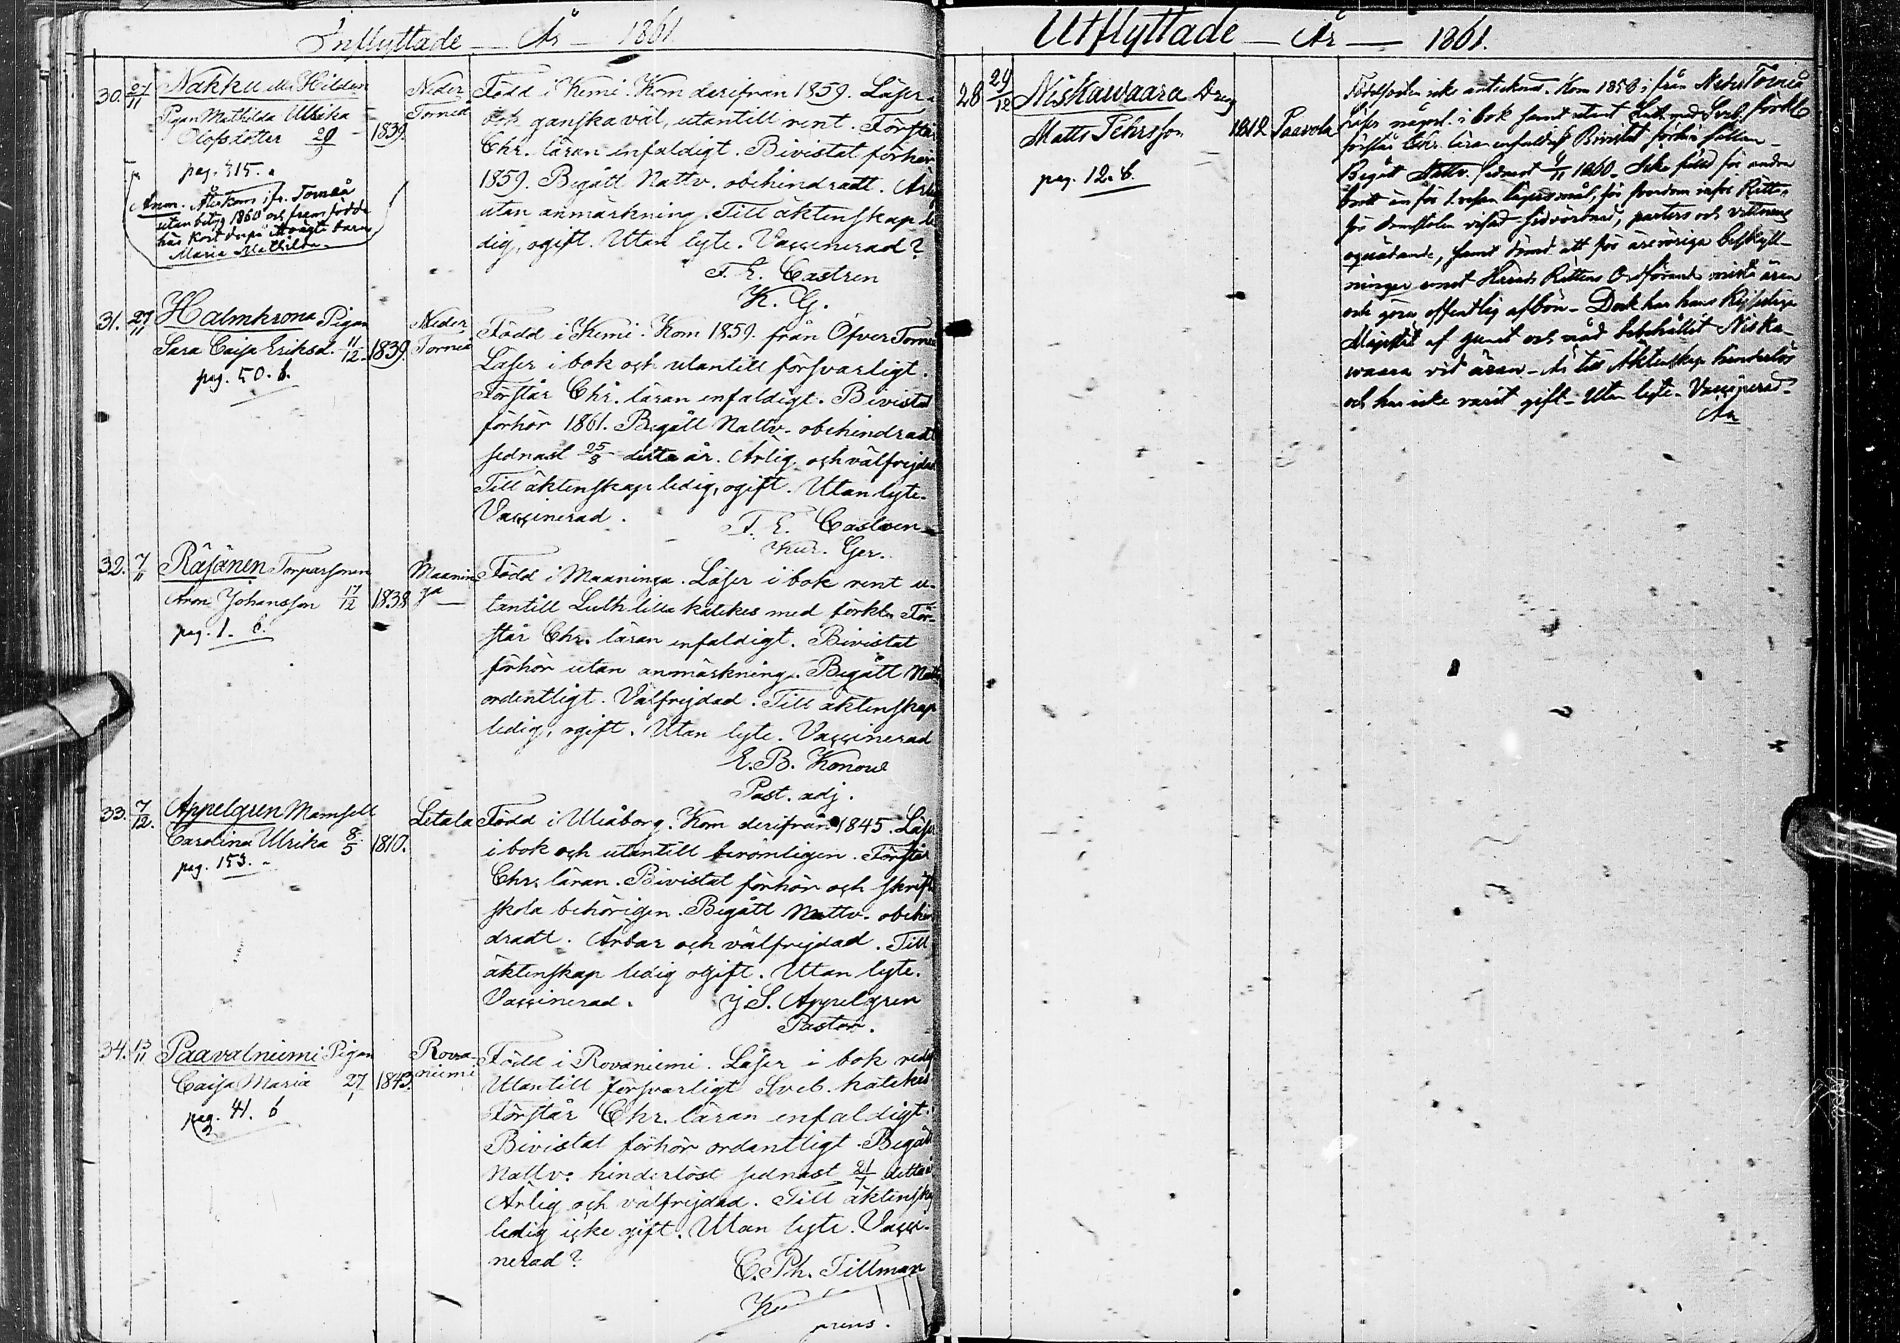 Inflyttade — År — 1861
30. 27/11 Nakku el. Hilden
Pigan Mathilda Ulrika
Olofsdotter 29/9 1839.
pag. 315.
Anm. Återkom ifr. Torneå
utan betyg 1860 och framfödde
här kort derpå oäkta barn
Maria Mathilda.
Neder
Torneå
Född i Kemi. Kom derifrån 1859. Läser i
bok ganska väl, utantill rent. Förstår
Chr. läran enfaldigt. Bivistat förhör
1859. Begått Nattv. obehindradt. Ärlig
utan anmärkning. Till äktenskap le-
dig, ogift. Utan lyte. Vaccinerad?
F. E. Castren
K. G.
31. 27/11 Halmkrona Pigan
Sara Caisa Eriksd. 11/12 1839.
pag. 50. b.
Neder
Torneå
Född i Kemi. Kom 1859. från Öfver Torneå
Läser i bok och utantill försvarligt.
Förstår Chr. läran enfaldigt. Bivistat
förhör 1861. Begått Nattv. obehindradt
sednast 25/8 detta år. Ärlig och välfrejdad
Till äktenskap ledig, ogift. Utan lyte.
Vaccinerad.
F. E. Castren
Kur. Ger.
32. 7/11 Räsänen Torparsonen
Aron Johansson 17/12 1838
pag. 1. b.
Maanin
ga
Född i Maaninga. Läser i bok rent u-
tantill Luth lilla katekes med förkl. För-
står Chr. läran enfaldigt. Bivistat
förhör utan anmärkning. Begått Nattv.
ordentligt. Välfrejdad. Till äktenskap
ledig, ogift. Utan lyte. Vaccinerad
E. B. Konow
Past. adj.
33. 7/12. Appelgren Mamsell
Carolina Ulrika 8/5 1810.
pag. 153.
Letala
Född i Uleåborg. Kom derifrån 1845. Läser
i bok och utantill berömligen. Förstår
Chr. läran. Bivistat förhör och skrift
skola behörigen. Begått Nattv. obehin
dradt. Ärbar och välfrejdad. Till
äktenskap ledig ogift. Utan lyte.
Vaccinerad.
J. S. Appelgren
Pastor.
34. 13/11 Paavalniemi Pigan
Caisa Maria 27/ 1843.
pag. 41. b
Rova-
niemi
Född i Rovaniemi. Läser i bok redigt
Utantill försvarligt Sveb. katekes
Förstår Chr. läran enfaldigt.
Bivistat förhör ordentligt. Begått
Nattv. hinderlöst sednast 21/7 detta år
Ärlig och välfrejdad. Till äktenskap
ledig icke gift. Utan lyte. Vacci-
nerad?
C. Ph. Tillman
prens.
Utflyttade — År — 1861.
28 29/12 Niskawaara Dreng
Matts Pehrsson 1812 Paavola
pag. 12. b.
Födelsorten icke antecknad. Kom 1850 ifrån Neder Torneå
Läser någorl. i bok samt utant. Luth. med Sveb. förkl.
förstår Chr. läran enfaldigt Bivistat förhör sällan.
Begått Nattv. sednast 4/11 1860.
och göra offentlig afbön. Dock har Hans Kejserliga
Majestät af gunst och nåd bibehållit Niska-
waara vid äran. Är till äktenskap hinderlös
och har icke varit gift. Utan lyte. Vaccinerad.